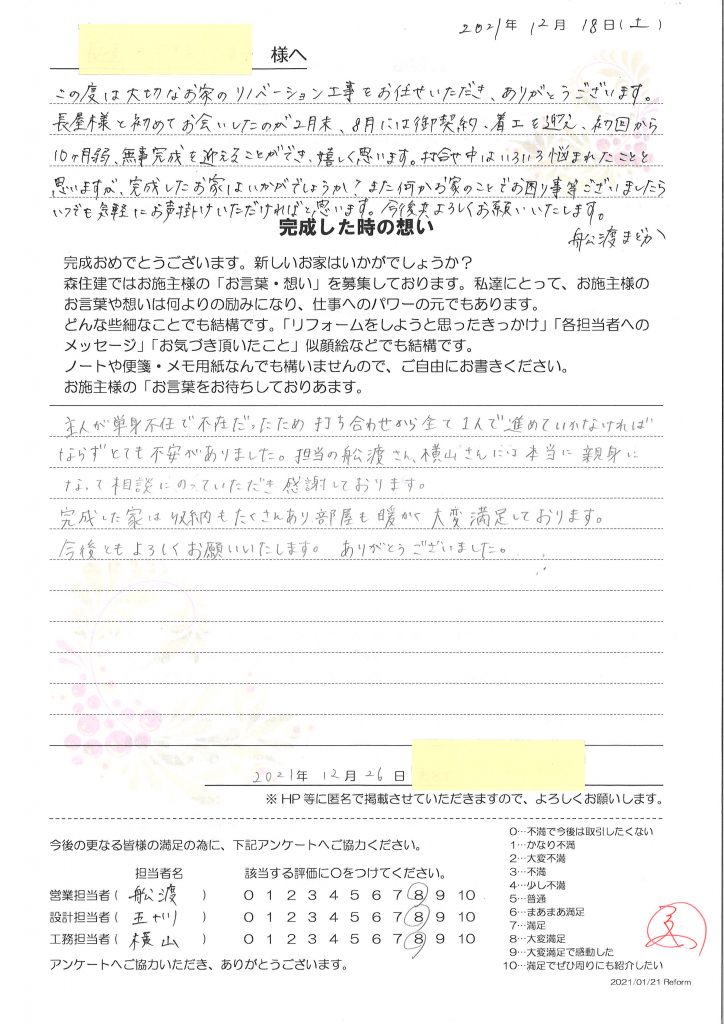 2021年 12月 18日(土)
様へ
この度は大切なお家のリノベーション工事をお任せいただき、ありがとうございます。
長屋様と初めてお会いしたのが2月末、8月には御契約、着工を迎え、初回から
10ヶ月弱、無事完成を迎えることができ、嬉しく思います。打合せ中はいろいろ悩まれたことと
思いますが、完成したお家はいかがでしょうか？また何かお家のことでお困り事等ございましたら
いつでも気軽にお声掛けいただければと思います。今後共よろしくお願いいたします。
舩渡まどか
完成した時の想い
完成おめでとうございます。新しいお家はいかがでしょうか？
森住建ではお施主様の「お言葉・想い」を募集しております。私達にとって、お施主様の
お言葉や想いは何よりの励みになり、仕事へのパワーの元でもあります。
どんな些細なことでも結構です。「リフォームをしようと思ったきっかけ」「各担当者への
メッセージ」「お気づき頂いたこと」似顔絵などでも結構です。
ノートや便箋・メモ用紙なんでも構いませんので、ご自由にお書きください。
お施主様の「お言葉をお待ちしておりあます。
主人が単身不任で不在だったため 打ち合わせから全て1人で進めていかなければ
ならずとても不安がありました。担当の舩渡さん、横山さんには本当に親身に
なって相談にのっていただき感謝しております。
完成した家は収納もたくさんあり部屋も暖かく大変満足しております。
今後ともよろしくお願いいたします。 ありがとうございました。
2021年 12月 26日
※HP等に匿名で掲載させていただきますので、よろしくお願いします。
今後の更なる皆様の満足の為に、下記アンケートへご協力ください。
担当者名 該当する評価に○をつけてください。
営業担当者( 舩渡 ) 0 1 2 3 4 5 6 7 8 9 10
設計担当者( 五十川 ) 0 1 2 3 4 5 6 7 8 9 10
工務担当者( 横山 ) 0 1 2 3 4 5 6 7 8 9 10
アンケートへご協力いただき、ありがとうございます。
0…不満で今後は取引したくない
1…かなり不満
2…大変不満
3…不満
4…少し不満
5…普通
6…まあまあ満足
7…満足
8…大変満足
9…大変満足で感動した
10…満足でぜひ周りにも紹介したい
2021/01/21 Reform